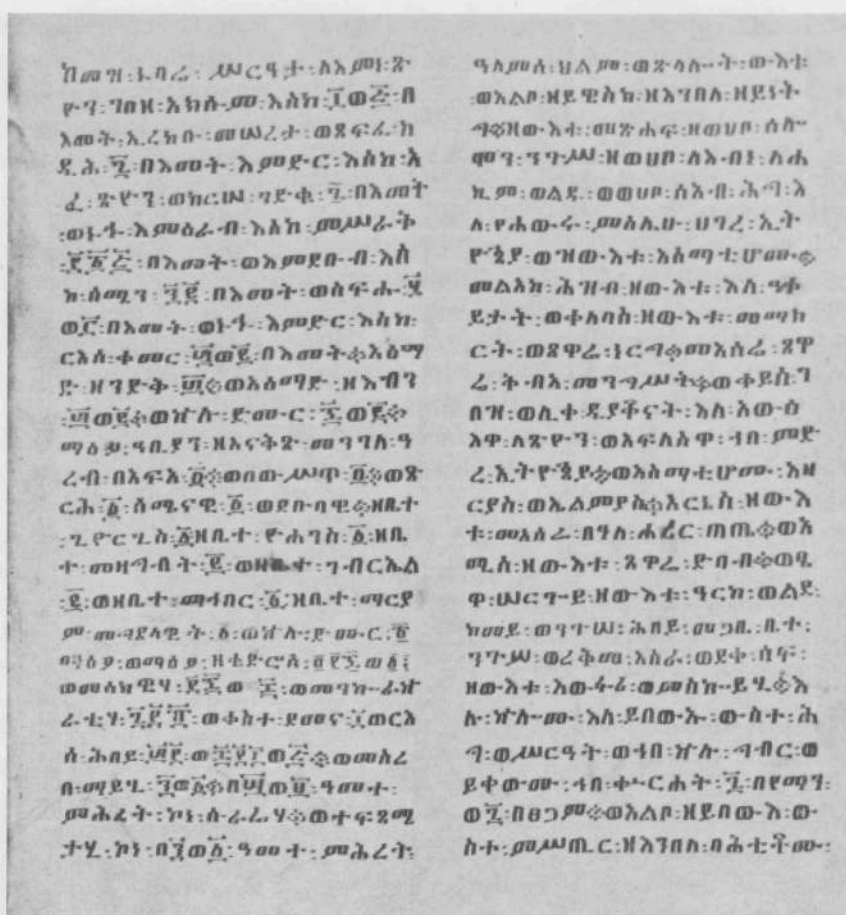 ከመዝ፡ኑባሬ፡ሥርዓታ፡ለእምነ፡ጽ
ዮን፡ገበዘ፡አክሱም፡እስከ፡፲ወ፭፡በ
እመት፡ኢረከቡ፡መሠረታ፡ወጸፍፈ፡ከ
ዲሕ፡፯፡በእመት፡እምድር፡እስከ፡አ
ፈ፡ጽዮን፡ወክርሠ፡ግድቁ፡፯፡በእመት
፡ወኑኃ፡እምዕራብ፡እስከ፡ምሥራቅ
በእመት፡ወእምደቡብ፡እስ
ከ፡ሰሜን፡፺፪፡በእመት፡ወስፍሐ፡
ወ፫፡በእመት፡ወኑኃ፡እምድር፡እስከ፡
ርእሰ፡ቀመር፡፴ወ፪፡በእመት።አዕማ
ድ፡ዘንድቅ፡፴።ወአዕማድ፡ዘእብን
፡፴ወ፪።ወኵሉ፡ድሙር፡፷ወ፪።
ማዕፆ፡ዓቢያን፡ዘአናቅጽ፡መንገለ፡ዓ
ረብ፡በአፍአ፡፩።ወበውሥጥ፡፩።ወጽ
ርሕ፡፩፡ሰሜናዊ፡፩፡ወደቡባዊ።ዘቤተ
፡ጊዮርጊስ፡፩፡ዘቤተ፡ዮሐንስ፡፩፡ዘቤ
ተ፡መዛግብት፡፪፡ወዘቤተ፡ገብርኤል
፡፪፡ወዘቤተ፡ማኅበር፡፩፡ዘቤተ፡ማርያ
ም፡መግደላዊት፡፩፡ወኵሉ፡ድሙር፡
ወማዕፆ፡ዘቲድሮስ፡
ወመሳክዊሃ፡ ወመንኰራኵ
ራቲሃ፡ ወቀስተ፡ደመና፡፲ወርእ
ሰ፡ሕበይ፡ ወመስረ
በ፡ማይ፡ ዓመተ፡
ምሕረት፡ኮነ፡ሱራሬሃ።ወተፍጻሜ
ተሃ፡ኮነ፡ ዓመተ፡ምሕረት፡
ዓለምሰ፡ህልም፡ወጽላሎት፡ውእቱ
፡ወአልቦ፡ዘይዌስክ፡ዘእንበለ፡ዘይነት
ግ።ዝውእቱ፡መጽሐፍ፡ዘወሀቦ፡ሰሎ
ሞን፡ንጉሥ፡ዘወሀቦ፡ለእብነ፡ለሐ
ኪም፡ወልዱ፡ወወሀቦ፡ሰእብ፡ሕግ፡እ
ለ፡የሐውሩ፡ምስሌሁ፡ሀገረ፡ኢት
ዮጵያ፡ወዝውእቱ፡አስማቲሆሙ።
መልአከ፡ሕዝብ፡ዘውእቱ፡እለ፡ዓቀ
ይታት፡ወቀለባስ፡ዘውእቱ፡መማክ
ርት፡ወጸዋሬ፡ ።መአሰሬ፡ጸዋ
ሬ፡ትብእ፡መንግሥት።ወቀይስ፡ገ
በዝ፡ወሊቀ፡ዲያቆናት፡እለ፡አውፅ
እዋ፡ለጽዮን፡ወአፍለስዋ፡ኀበ፡ምድ
ረ፡ኢትዮጵያ።ወአስማቲሆሙ፡አዛ
ርያስ፡ወኤልምያስ።እርኔስ፡ዘውእ
ቱ፡መአሰሬ፡በዓለ፡ሐፌር፡ጠጤ።ወአ
ሚስ፡ዘውእቱ፡ጸዋሬ፡ድባብ።ወዔ
ዋ፡ሠርጐይ፡ዘውእቱ፡ዓርክ፡ወልደ፡
ከመይ፡ወንጉሠ፡ሕበይ፡መጋቤ፡ቤተ፡
ንጉሥ፡ወረቅመ፡አስራ፡ወደቀ፡ሰፍ፡
ዘውእቱ፡አውፋሪ፡ወምስኰይ፡ እ
ሉ፡ኵሎሙ፡እለ፡ይበውኡ፡ውስተ፡ሕ
ግ፡ወሥርዓት፡ወኀበ፡ኵሉ፡ግብር፡ወ
ይቀውሙ፡ኀበ፡ቍርሐት፡ በየማን፡
ወ በፀጋም።ወአልቦ፡ዘይበውእ፡ው
ስተ፡ምሥጢር፡ዘእንበለ፡ባሕቲቶሙ፡